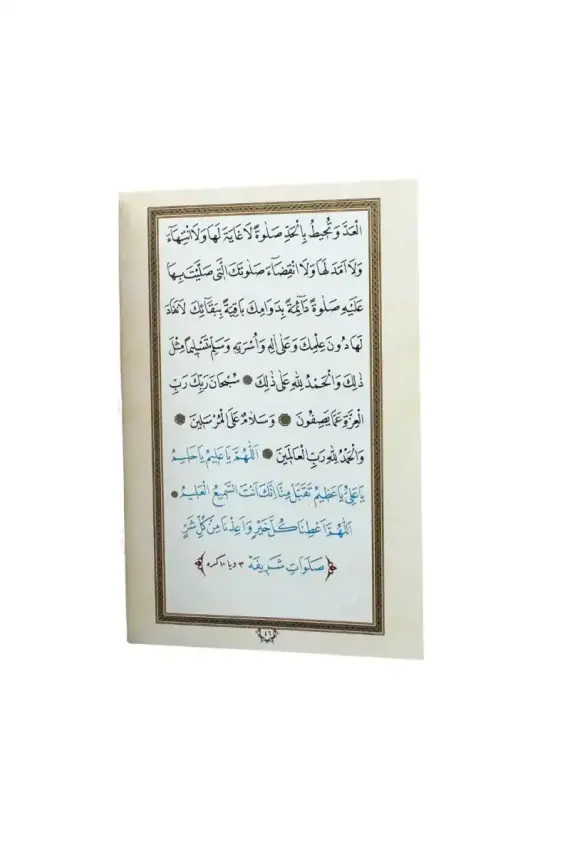 الْعَدَّ وَتُحِيطُ بِالْحَدِّ صَلٰوةً لَا غَايَةَ لَهَا وَلَا انْتِهَاءَ
وَلَا اَمَدَ لَهَا وَلَا انْقِضَاءَ صَلٰوتَكَ الَّتِى صَلَّيْتَ بِهَا
عَلَيْهِ صَلٰوةً دَائِمَةً بِدَوَامِكَ بَاقِيَةً بِبَقَائِكَ لَا نَفَادَ
لَهَا دُونَ عِلْمِكَ وَعَلٰى اٰلِهِ وَاُسْرَتِهِ وَسَلِّمْ تَسْلِيمًا مِثْلَ
ذٰلِكَ وَالْحَمْدُ لِلّٰهِ عَلٰى ذٰلِكَ ۞ سُبْحَانَ رَبِّكَ رَبِّ
الْعِزَّةِ عَمَّا يَصِفُونَ ۞ وَسَلَامٌ عَلَى الْمُرْسَلِينَ ۞
وَالْحَمْدُ لِلّٰهِ رَبِّ الْعَالَمِينَ ۞ اَللّٰهُمَّ يَا عَلِيمُ يَا حَلِيمُ
يَا عَلِىُّ يَا عَظِيمُ تَقَبَّلْ مِنَّا اِنَّكَ اَنْتَ السَّمِيعُ الْعَلِيمُ ۞
اَللّٰهُمَّ اَعْطِنَا كُلَّ خَيْرٍ وَاَعِذْنَا مِنْ كُلِّ شَرٍّ
صَلَوَاتِ شَرِيفَه ٣ ويا ١٠ كره
٤٦